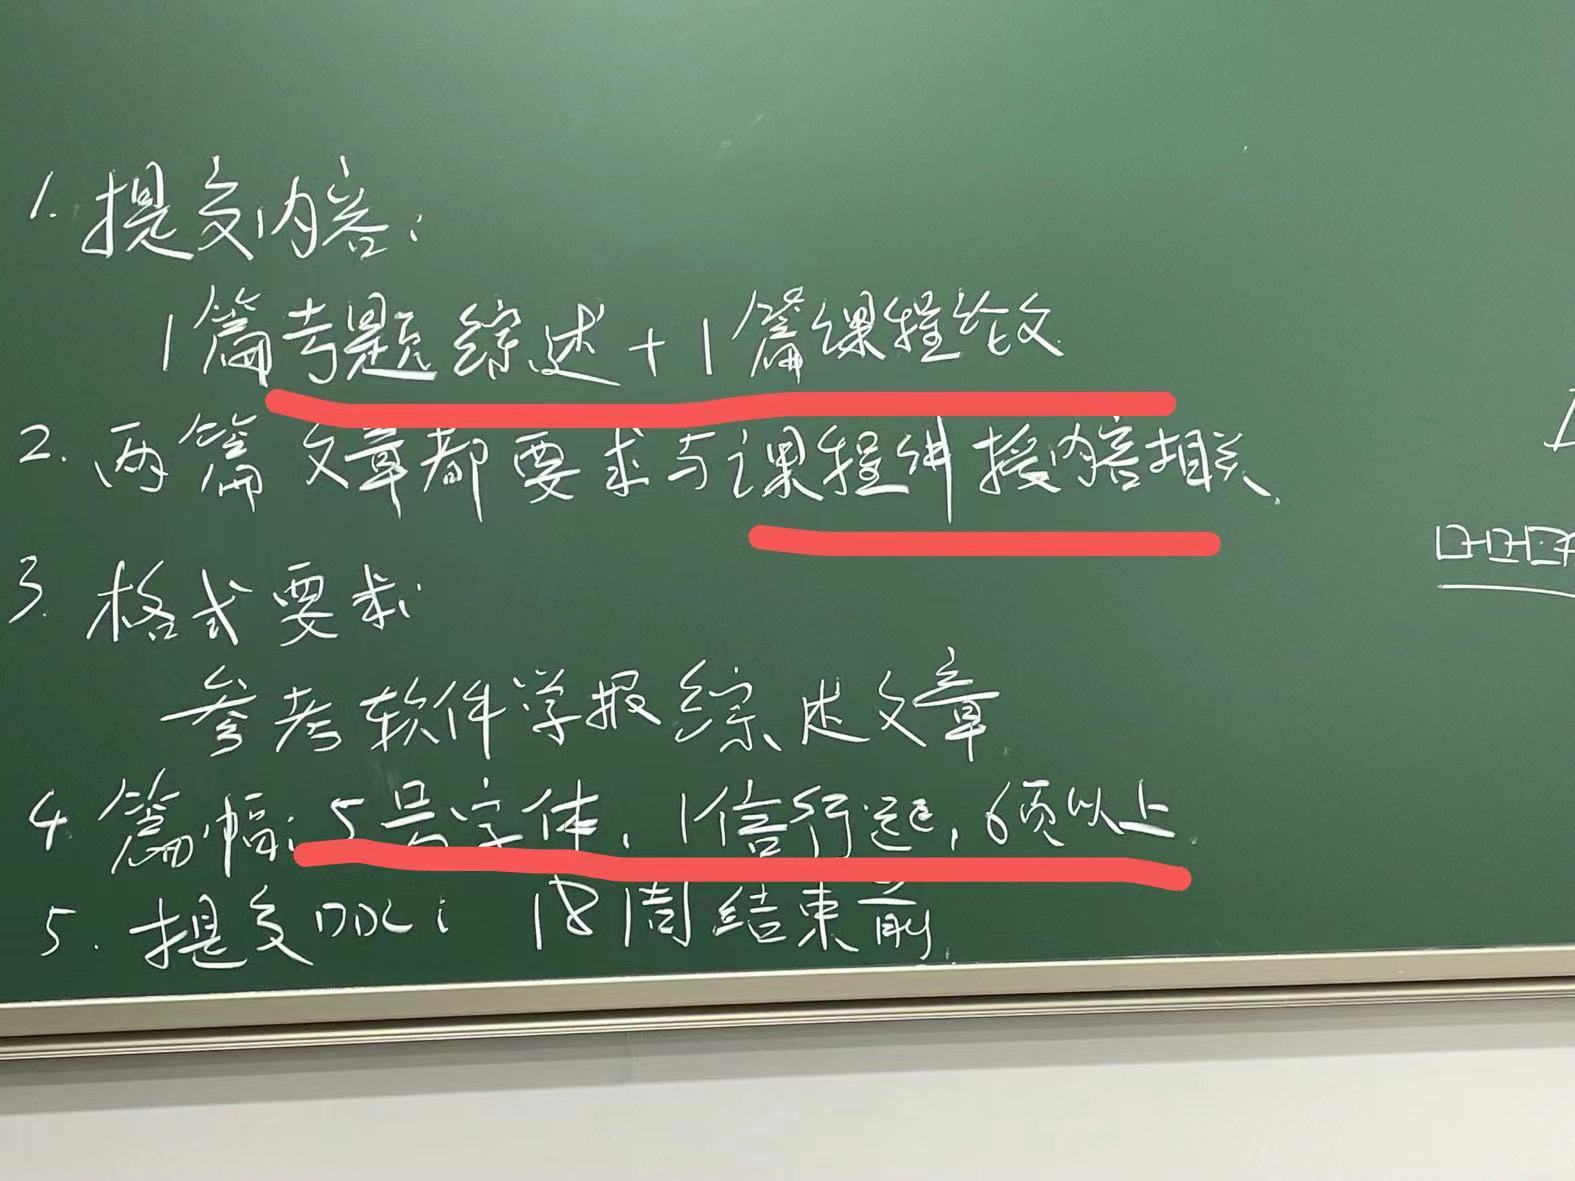 1. 提交内容:
1篇考题综述+1篇课程论文
2. 两篇文章都要求与课程讲授内容相关.
3. 格式要求:
参考软件学报综述文章.
4 篇幅: 5号字体, 1倍行距, 6页以上.
5. 提交DDL: 18周结束前.